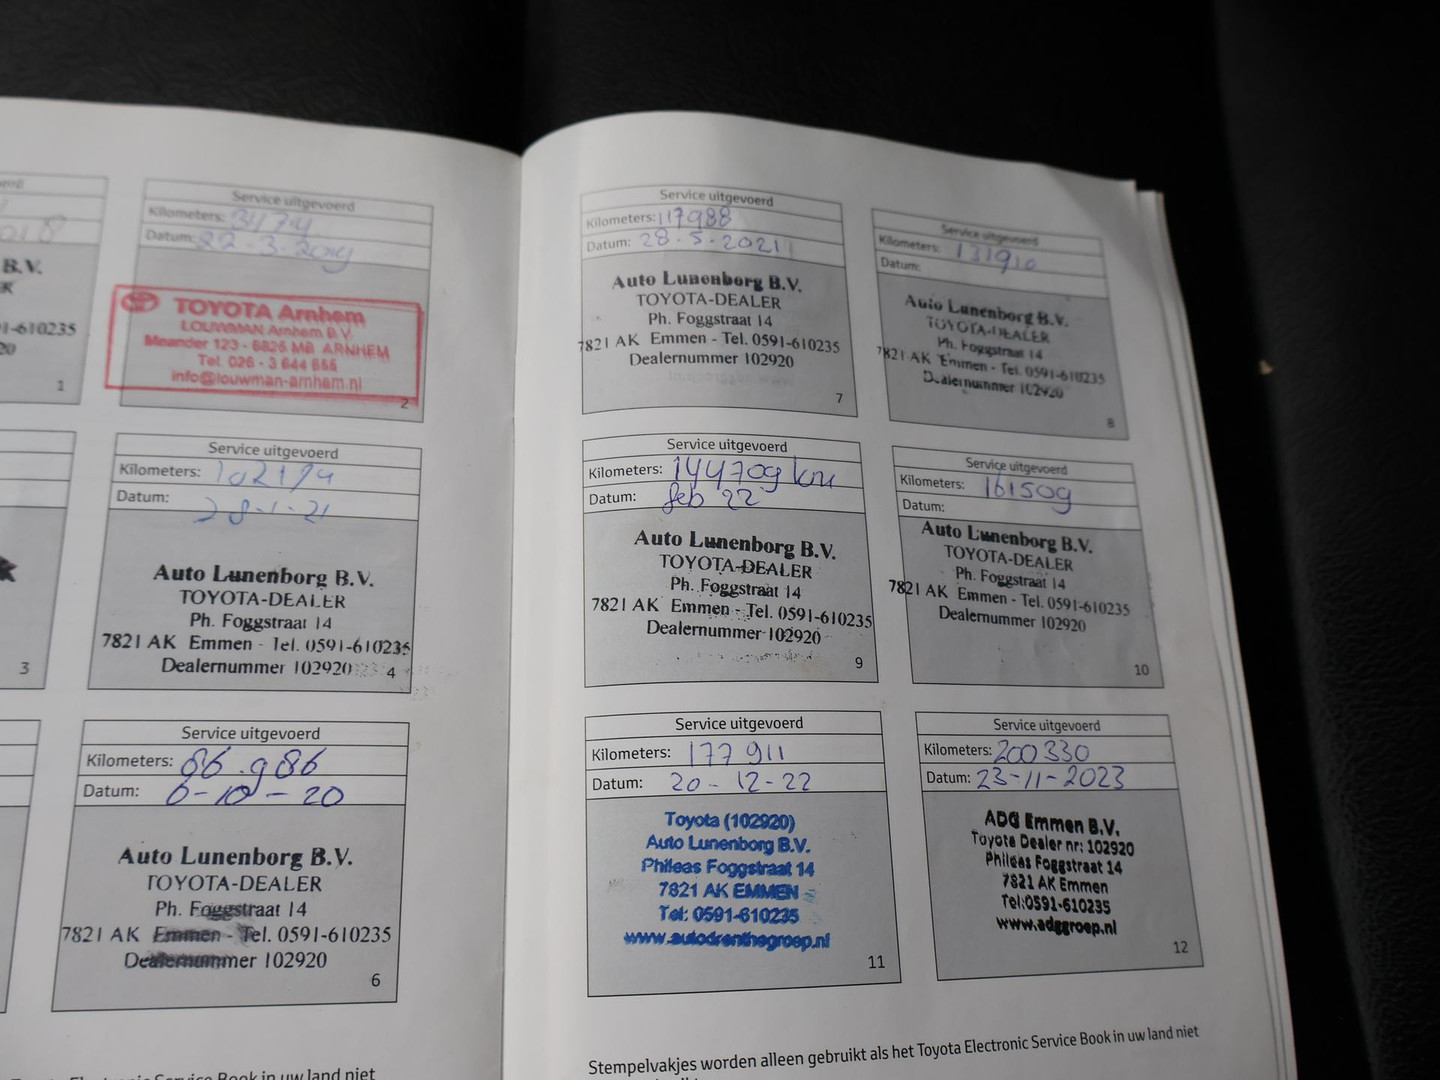 B.V.
1-610235
1
Service uitgevoerd
Kilometers:
Datum: 22-3-2019
TOYOTA Arnhem
LOUWMAN Arnhem B.V.
Meander 123 - 6825 MB ARNHEM
Tel. 026 - 3 644 655
info@louwman-arnhem.nl
2
3
Service uitgevoerd
Kilometers:
Datum:
28-1-21
Auto Lunenborg B.V.
TOYOTA-DEALER
Ph. Foggstraat 14
7821 AK Emmen - Tel. 0591-610235
Dealernummer 102920
4
Service uitgevoerd
Kilometers: 86.986
Datum: 6-10-20
Auto Lunenborg B.V.
TOYOTA-DEALER
Ph. Foggstraat 14
7821 AK Emmen - Tel. 0591-610235
Dealernummer 102920
6
Service Book in uw land niet
Service uitgevoerd
Kilometers: 117988
Datum: 28-5-2021
Auto Lunenborg B.V.
TOYOTA-DEALER
Ph. Foggstraat 14
7821 AK Emmen - Tel. 0591-610235
Dealernummer 102920
7
Service uitgevoerd
Kilometers: 131910
Datum:
Auto Lunenborg B.V.
TOYOTA-DEALER
Ph. Foggstraat 14
7821 AK Emmen - Tel. 0591-610235
Dealernummer 102920
8
Service uitgevoerd
Kilometers: 144709 km
Datum: feb 22
Auto Lunenborg B.V.
TOYOTA-DEALER
Ph. Foggstraat 14
7821 AK Emmen - Tel. 0591-610235
Dealernummer 102920
9
Service uitgevoerd
Kilometers: 161509
Datum:
Auto Lunenborg B.V.
TOYOTA-DEALER
Ph. Foggstraat 14
7821 AK Emmen - Tel. 0591-610235
Dealernummer 102920
10
Service uitgevoerd
Kilometers: 177911
Datum: 20-12-22
Toyota (102920)
Auto Lunenborg B.V.
Phileas Foggstraat 14
7821 AK EMMEN
Tel: 0591-610235
www.autodrenthegroep.nl
11
Service uitgevoerd
Kilometers: 200330
Datum: 23-11-2023
ADG Emmen B.V.
Toyota Dealer nr: 102920
Phileas Foggstraat 14
7821 AK Emmen
Tel:0591-610235
www.adggroep.nl
12
Stempelvakjes worden alleen gebruikt als het Toyota Electronic Service Book in uw land niet